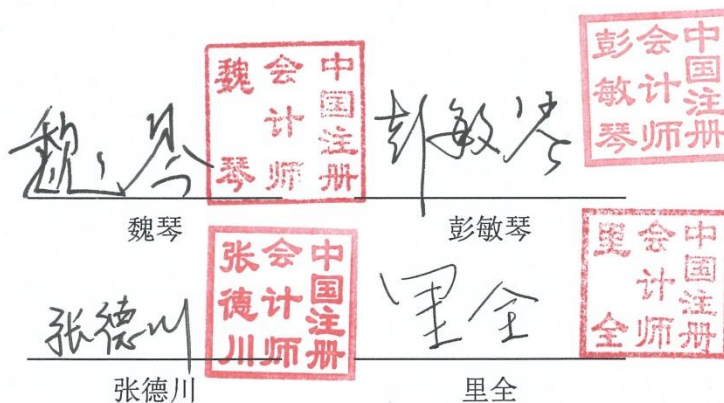 魏琴
中国注册
会计师
魏琴
彭敏琴
中国注册
会计师
彭敏琴
魏琴
彭敏琴
张德川
中国注册
会计师
张德川
里全
中国注册
会计师
里全
张德川
里全